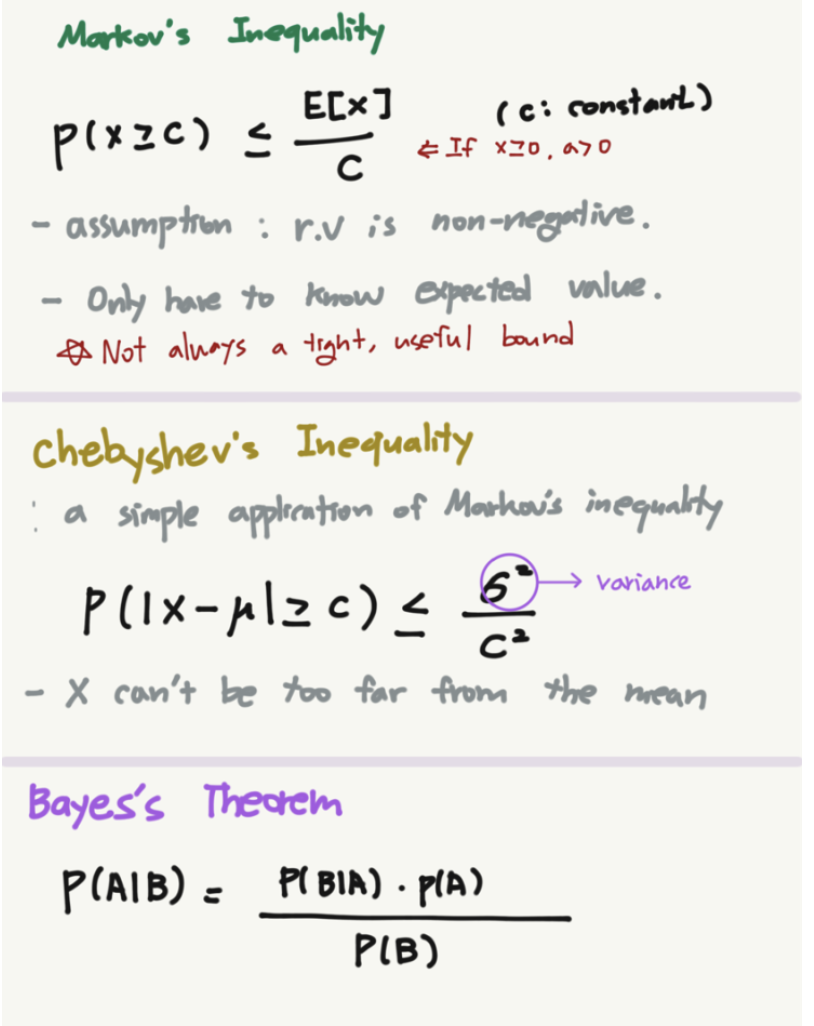 Markov's Inequality
P(x ≥ c) ≤ E[x] / C (c: constant)
⇐ If x≥0, a>0
- assumption : r.v is non-negative.
- Only have to know expected value.
☆ Not always a tight, useful bound
Chebyshev's Inequality
: a simple application of Markov's inequality
P(|x-μ| ≥ c) ≤ σ² / c² → variance
- X can't be too far from the mean
Bayes's Theorem
P(A|B) = P(B|A) · P(A) / P(B)